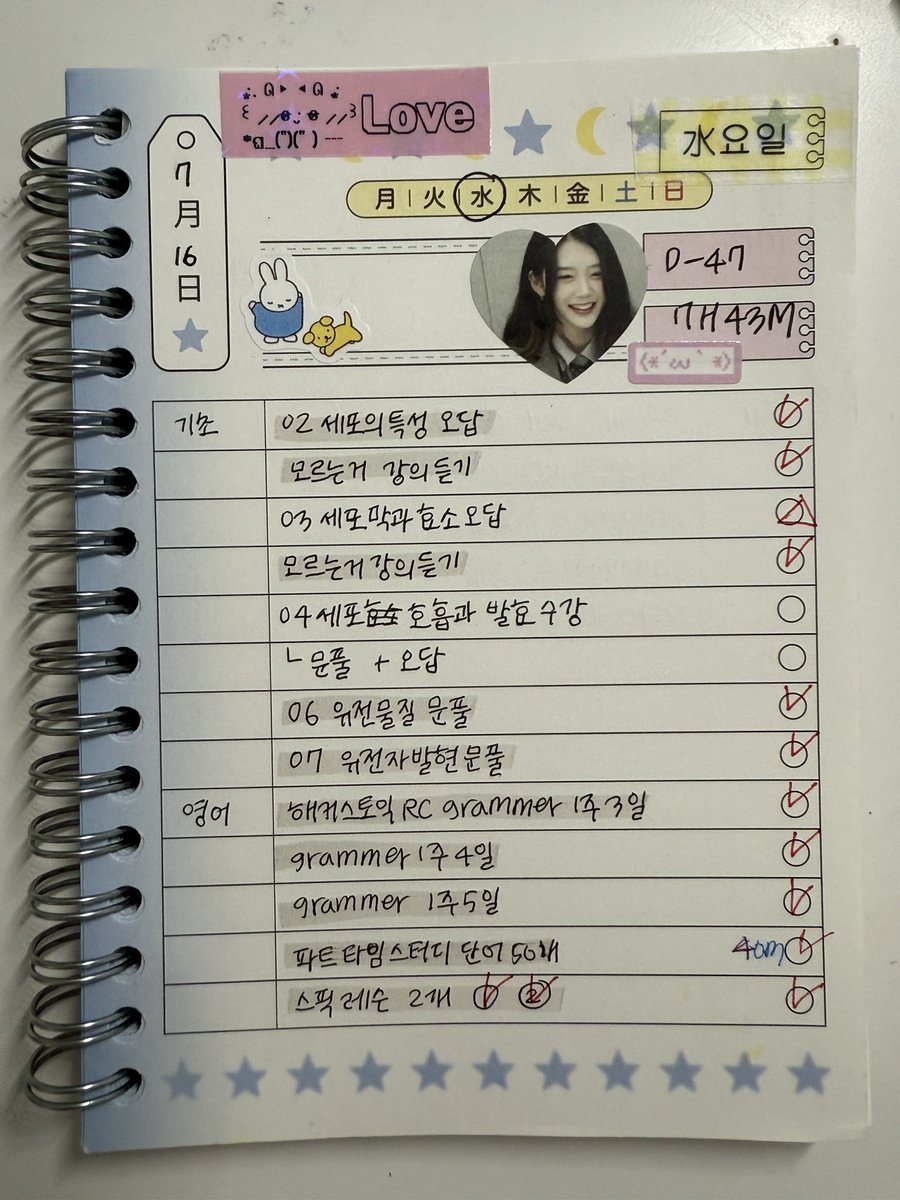 Love
水요일
07月16日
月 | 火 | 水 | 木 | 金 | 土 | 日
D-47
7H43M
(*´ω`*)
기초 02 세포의특성 오답
모르는거 강의듣기
03 세포막과효소오답
모르는거강의듣기
04세포 호흡과 발효수강
ㄴ문풀 + 오답
06 유전물질 문풀
07 유전자발현문풀
영어 해커스토익 RC grammer 1주3일
grammer 1주4일
grammer 1주5일
파트타임스터디 단어50개 40m
스픽레슨 2개 1 2